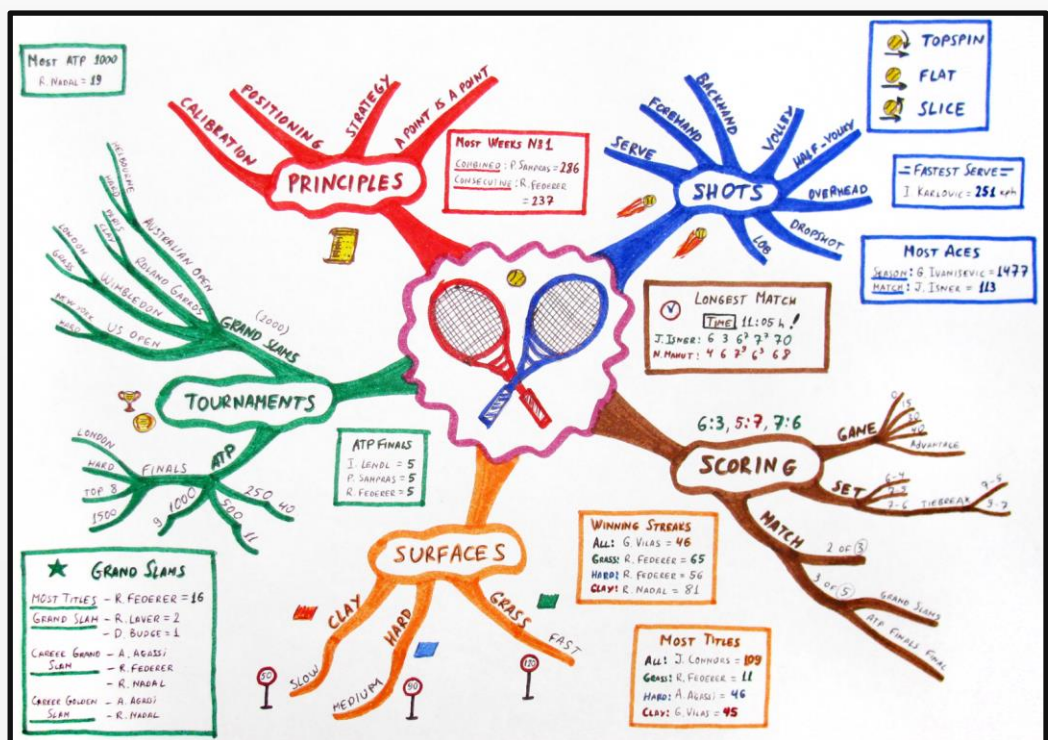 MOST ATP 1000
R. NADAL = 19
CALIBRATION
POSITIONING
STRATEGY
A POINT IS A POINT
PRINCIPLES
MOST WEEKS Nº1
COMBINED: P. SAMPRAS = 286
CONSECUTIVE: R. FEDERER
= 237
SERVE
FOREHAND
BACKHAND
VOLLEY
HALF-VOLLEY
OVERHEAD
DROPSHOT
LOB
SHOTS
TOPSPIN
FLAT
SLICE
FASTEST SERVE
I. KARLOVIC = 251 kph
MOST ACES
SEASON: G. IVANISEVIC = 1477
MATCH: J. ISNER = 113
LONGEST MATCH
TIME 11:05 h!
J. ISNER: 6 3 6⁷ 7⁷ 70
N. MAHUT: 4 6 7⁹ 6³ 68
MELBOURNE
HARD
AUSTRALIAN OPEN
PARIS
CLAY
ROLAND GARROS
LONDON
GRASS
WIMBLEDON
NEW YORK
HARD
US OPEN
GRAND SLAMS
(2000)
TOURNAMENTS
ATP
FINALS
LONDON
HARD
TOP 8
1500
1000
9
500
11
250
40
ATP FINALS
I. LENDL = 5
P. SAMPRAS = 5
R. FEDERER = 5
6:3, 5:7, 7:6
SCORING
GAME
0
15
30
40
ADVANTAGE
SET
6-4
7-5
7-6
TIEBREAK
7-5
9-7
MATCH
2 OF 3
3 OF 5
GRAND SLAMS
ATP FINALS FINAL
SURFACES
CLAY
SLOW
HARD
MEDIUM
GRASS
FAST
50
90
130
WINNING STREAKS
ALL: G. VILAS = 46
GRASS: R. FEDERER = 65
HARD: R. FEDERER = 56
CLAY: R. NADAL = 81
MOST TITLES
ALL: J. CONNORS = 109
GRASS: R. FEDERER = 11
HARD: A. AGASSI = 46
CLAY: G. VILAS = 45
GRAND SLAMS
MOST TITLES - R. FEDERER = 16
GRAND SLAM - R. LAVER = 2
- D. BUDGE = 1
CAREER GRAND SLAM - A. AGASSI
- R. FEDERER
- R. NADAL
CAREER GOLDEN SLAM - A. AGASSI
- R. NADAL